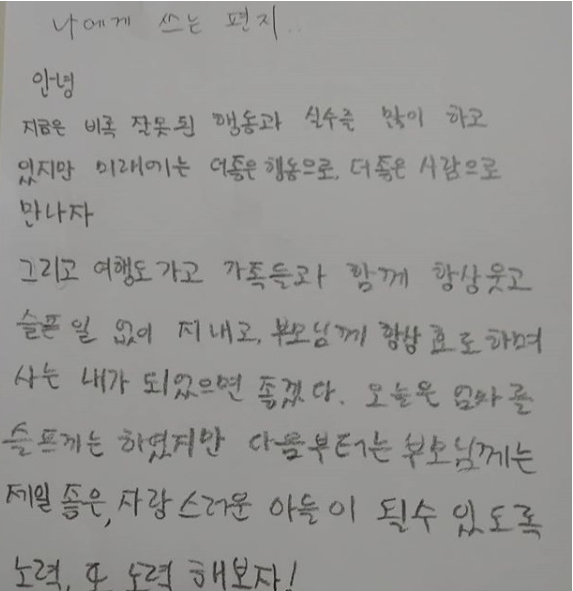 나에게 쓰는 편지..
안녕
지금은 비록 잘못된 행동과 실수를 많이 하고
있지만 미래에는 더좋은행동으로, 더좋은 사람으로
만나자
그리고 여행도가고 가족들과 함께 항상웃고
슬픈 일 없이 지내고, 부모님께 항상 효도하며
사는 내가 되었으면 좋겠다. 오늘은 엄마를
슬프게는 하였지만 다음부터는 부모님께는
제일 좋은, 자랑스러운 아들이 될수 있도록
노력, 또 노력 해보자!